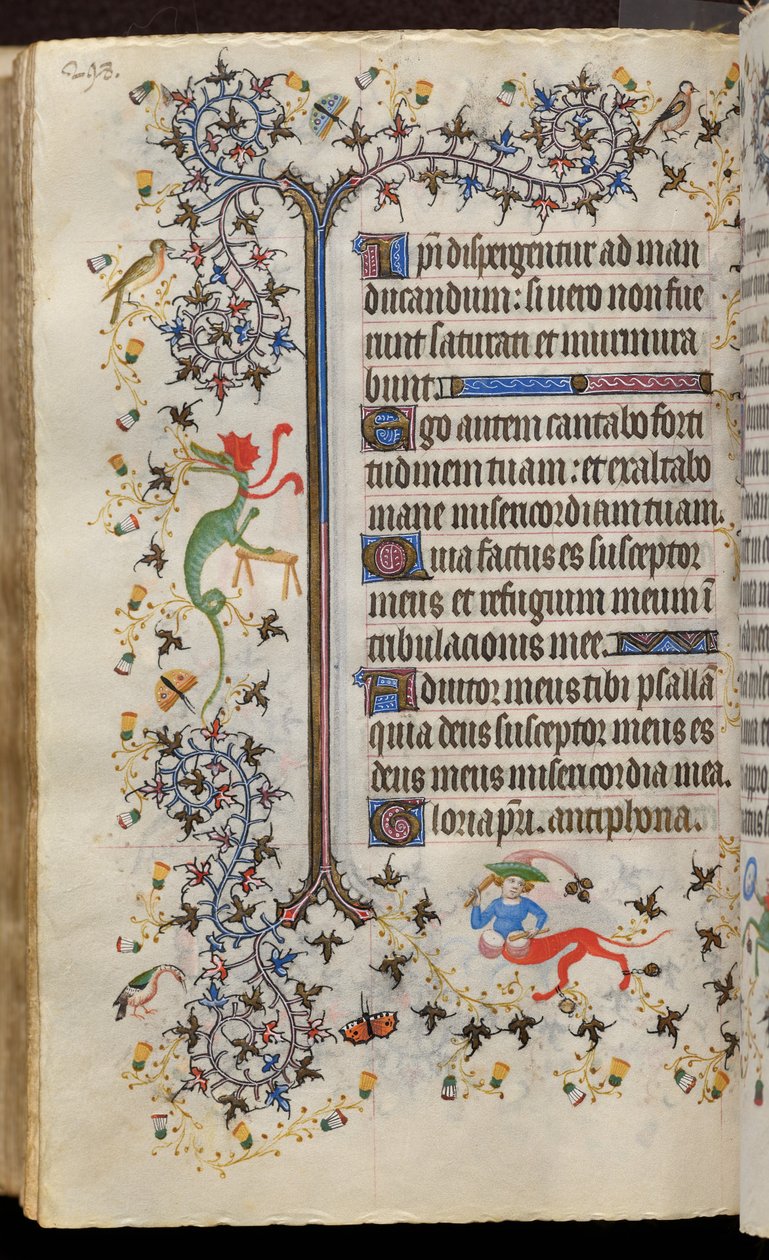 Ip̄i dispergentur ad man
ducandum: si vero non fue
rint saturati et murmura
bunt.
Ego autem cantabo forti
tudinem tuam: et exaltabo
mane misericordiam tuam.
Quia factus es susceptor
meus et refugium meum ī
tribulacionis mee.
Adiutor meus tibi psallā
quia deus susceptor meus es
deus meus misericordia mea.
Gloria pr̄i. antiphona.